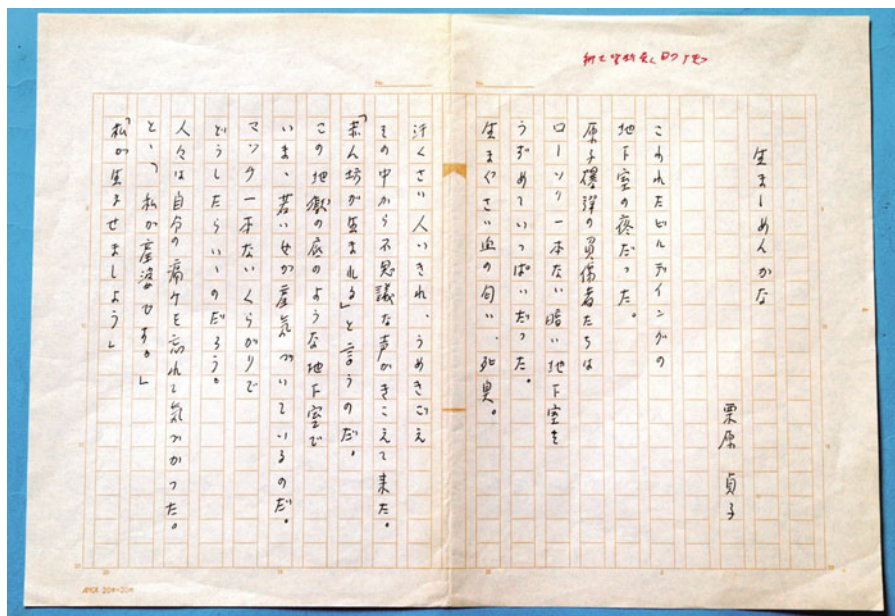 生ましめんかな
栗原 貞子
こわれたビルデイングの
地下室の夜だった。
原子爆弾の負傷者たちは
ローソク一本ない暗い地下室を
うずめていっぱいだった。
生まぐさい血の匂い、死臭。
汗くさい人いきれ、うめきごえ
その中から不思議な声がきこえて来た。
「赤ん坊が生まれる」と言うのだ。
この地獄の底のような地下室で
いま、若い女が産気づいているのだ。
マッチ一本ないくらがりで
どうしたらいいのだろう。
人々は自分の痛みを忘れて気づかつた。
と、「私が産婆です。」
「私が生ませましよう」
APICA 20×20